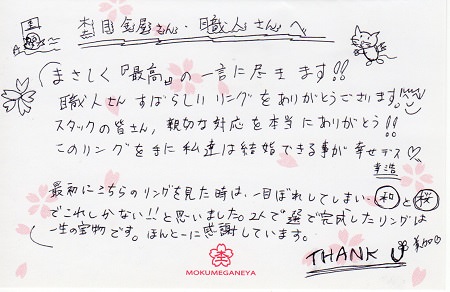 杢目金屋さん・職人さんへ
まさしく『最高』の一言に尽きます!!
職人さん すばらしいリングをありがとうございます。
スタッフの皆さん、親切な対応を本当にありがとう!!
このリングを手に私達は結婚できる事が幸せデス♡
最初にこちらのリングを見た時は、一目ぼれしてしまい、和と桜
でこれしかない!!と思いました。2人で選んで完成したリングは
一生の宝物です。ほんとーに感謝しています。
THANK U
MOKUMEGANEYA